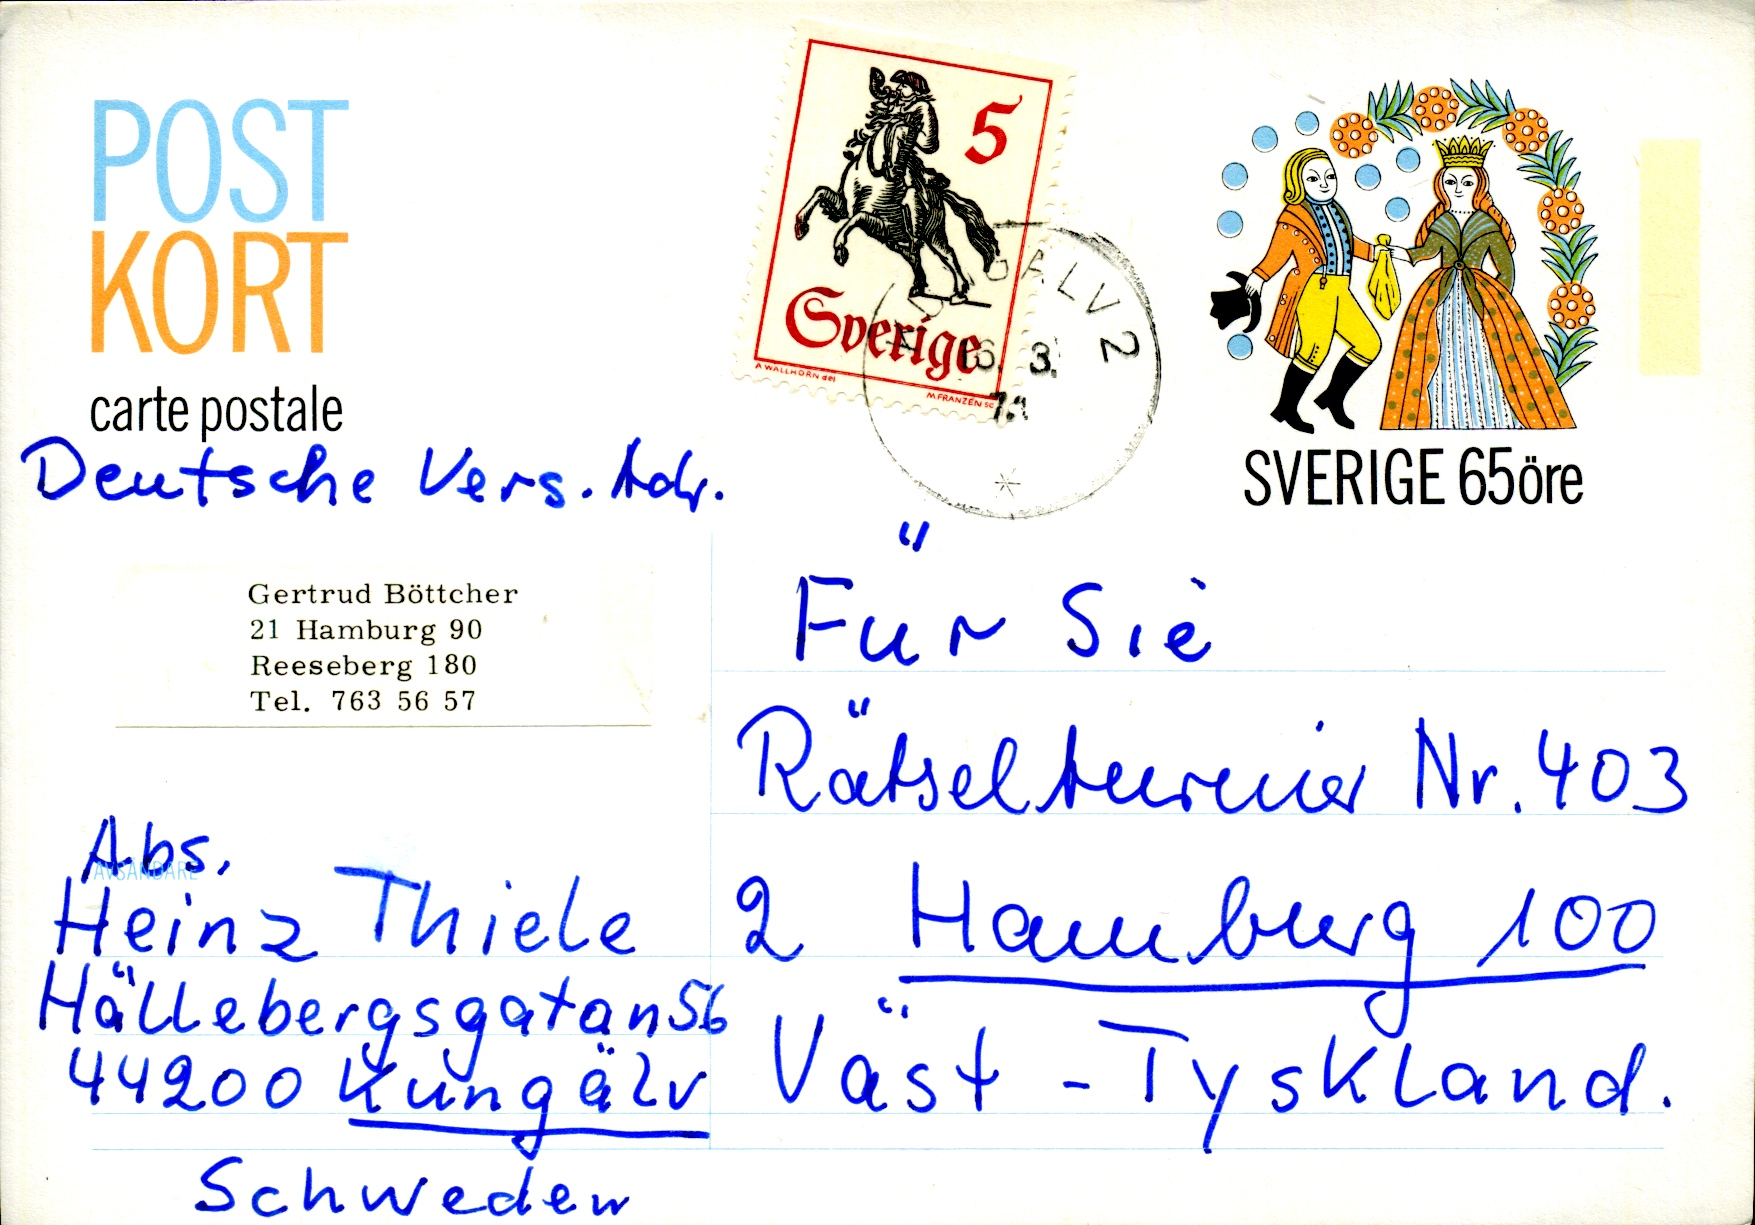 POST
KORT
carte postale
5
Sverige
A WALLHORN del
M FRANZEN SC
ALV 2
3.
SVERIGE 65öre
Deutsche Vers. Adr.
Gertrud Böttcher
21 Hamburg 90
Reeseberg 180
Tel. 763 56 57
Für Sie
Rätselturnier Nr. 403
2 Hamburg 100
Väst - Tyskland.
Abs.
AVSÄNDARE
Heinz Thiele
Hällebergsgatan 56
44200 Kungälv
Schweden